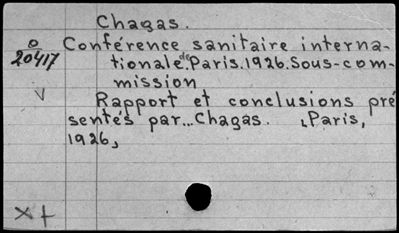 Chagas.
o
20417
Conférence sanitaire interna-
tionale de Paris.1926.Sous-com-
mission
V
Rapport et conclusions pré
sentés par...Chagas. Paris,
1926,
x t